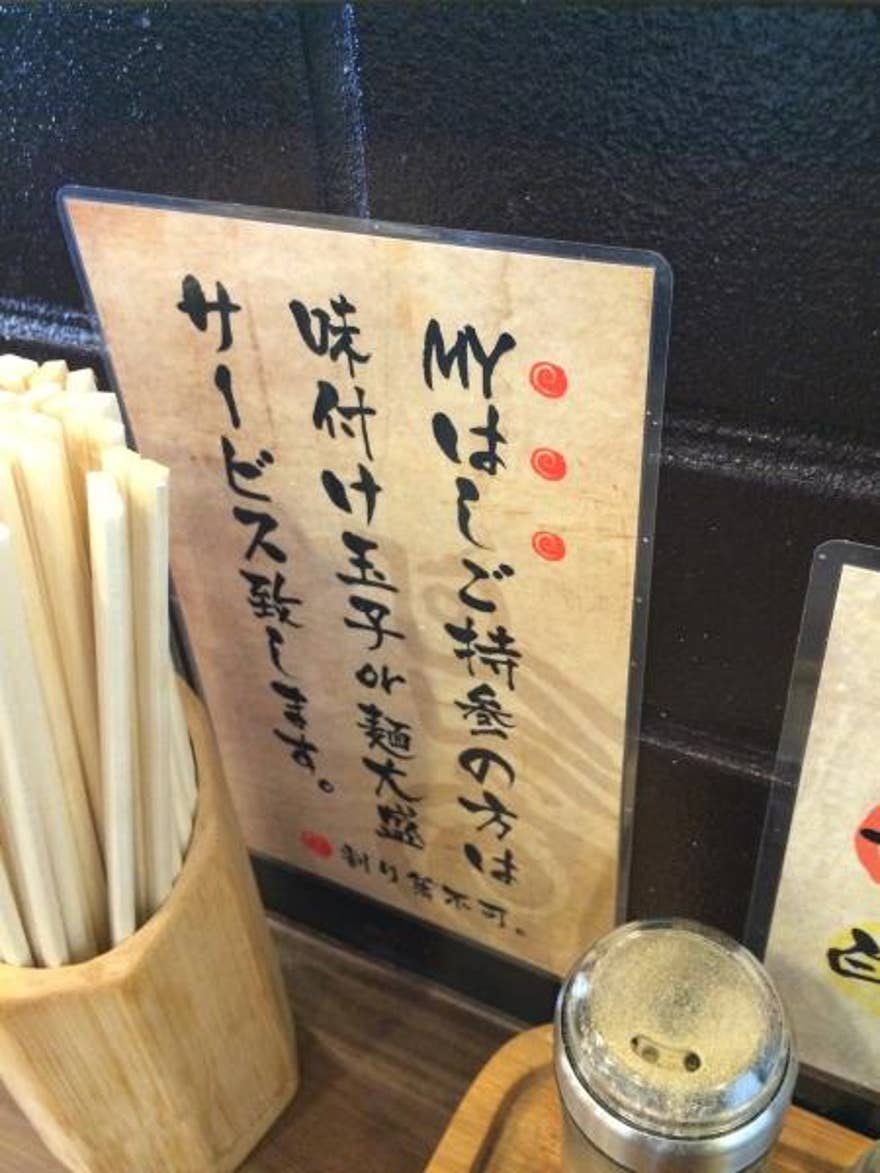 MYはしご持参の方は
味付け玉子or麺大盛
サービス致します。
割り箸不可。